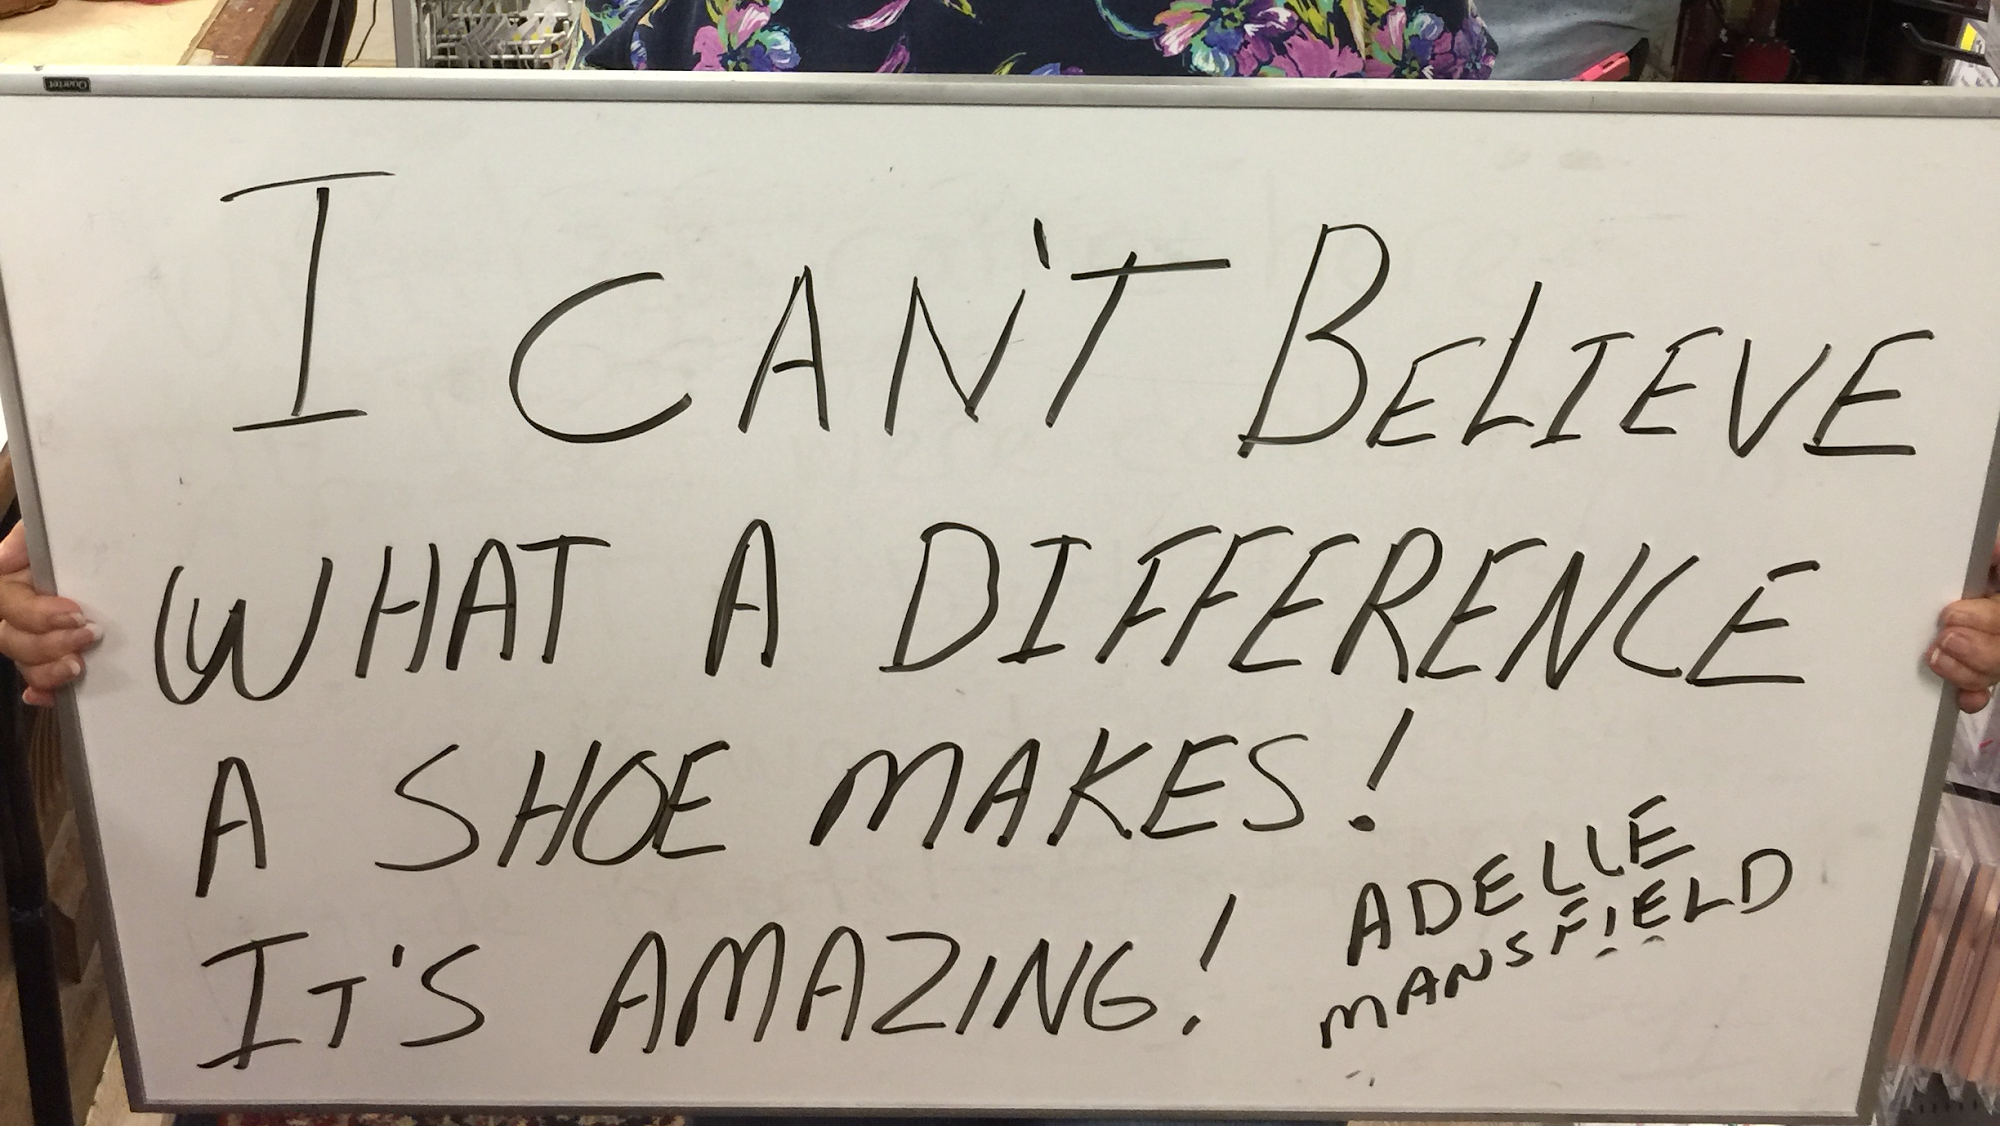 Quartet
I CAN'T BELIEVE
WHAT A DIFFERENCE
A SHOE MAKES!
IT'S AMAZING!
ADELLE
MANSFIELD